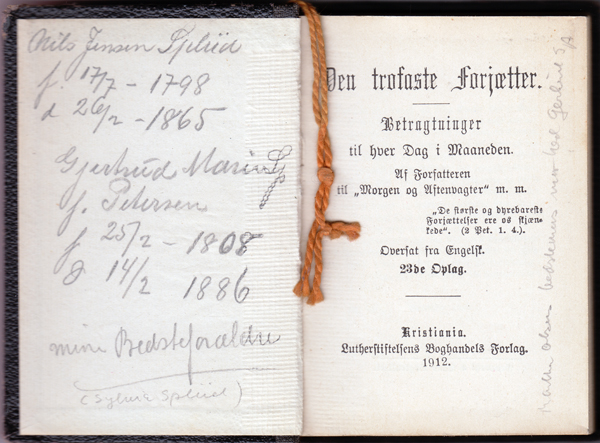 Nils Jensen Spliid
f. 17/7 - 1798
d 26/2 - 1865
Gjertrud Marin Sp
f. Petersen
f 25/2 - 1808
d 14/2 1886
mine Bedsteforældre
(Sylvie Spliid)
Den trofaste Forjætter.
Betragtninger
til hver Dag i Maaneden.
Af Forfatteren
til „Morgen og Aftenvagter“ m. m.
„De største og dyrebareste
Forjættelser ere os skjæn-
kede“. (2 Pet. 1. 4.).
Oversat fra Engelsk.
23de Oplag.
Kristiania.
Lutherstiftelsens Boghandels Forlag.
1912.
Olsens bedstemor hed